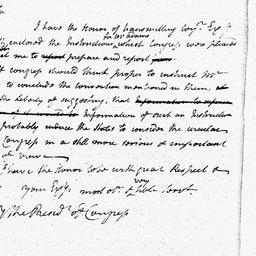 I have the Honor of transmitting to yr. Exy
enclosed the Instructions for Mr Adams which Congress were pleased
me to report prepare and report
congress should think proper to instruct Mr
to conclude the convention mentioned in them,
the liberty of suggesting, that Information to
Information of such an Instruction
probably induce the States to consider the circular
Congress in a still more serious & important
of view
have the Honor to be with great Respect &
your Exys. most obt. & very hble Servt.
The Presidt. of Congress